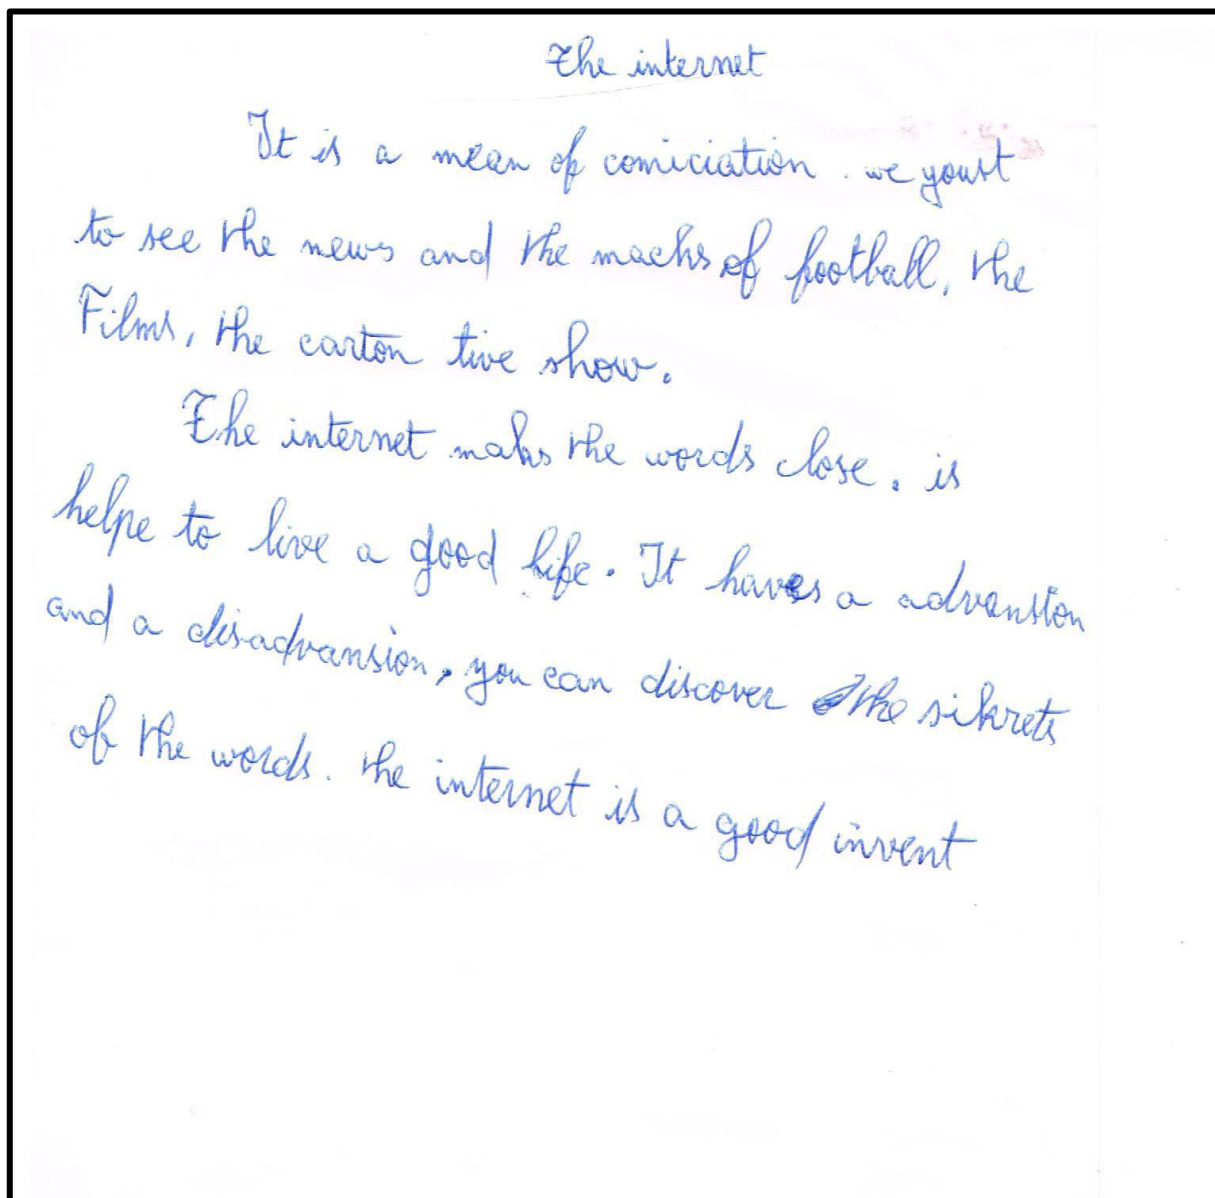 The internet
It is a mean of comiciation . we youst
to see the news and the machs of football, the
Films, the carton tive show.
The internet maks the words close. is
helpe to live a good life. It haves a advanston
and a disadvansion, you can discover the sikrets
of the words. the internet is a good invent